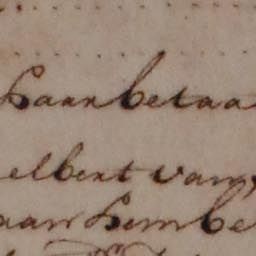 haar betaa
elbert van
aan hem be